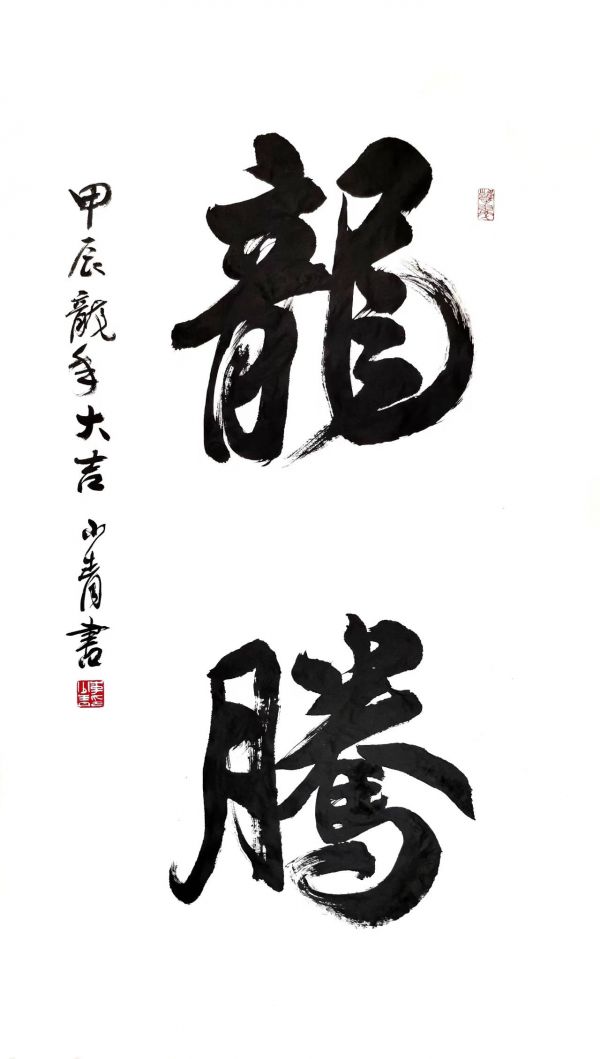 龍騰
甲辰龍年大吉 小青書